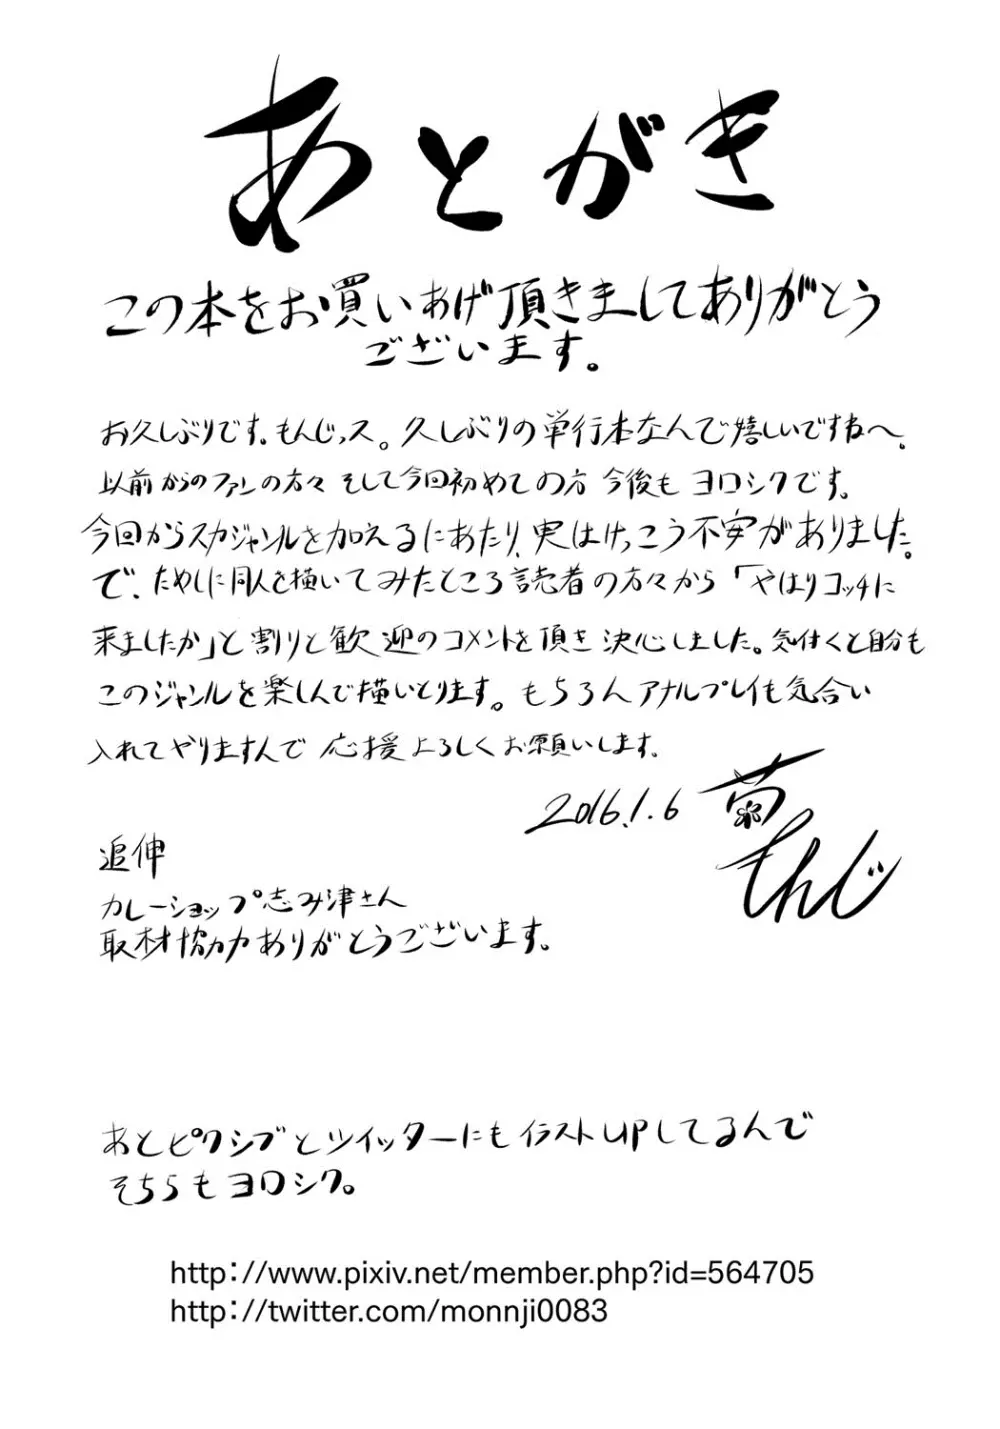 あとがき
この本をお買いあげ頂きましてありがとう
ございます。
お久しぶりです。もんじっス。久しぶりの単行本なんで嬉しいですねへ。
以前からのファンの方々 そして今回初めての方 今後も ヨロシクです。
今回からスカジャンルを加えるにあたり、実はけっこう不安がありました。
で、ためしに同人を描いてみたところ読者の方々から「やはりコッチに
来ましたか」と割りと歓迎のコメントを頂き決心しました。気付くと自分も
このジャンルを楽しんで描いとります。もちろんアナルプレイも気合い
入れてやりますんで 応援よろしくお願いします。
2016.1.6 菊
もんじ
追伸
カレーショップ志み津さん
取材協力ありがとうございます。
あとピクシブとツイッターにもイラストUPしてるんで
そちらもヨロシク。
http://www.pixiv.net/member.php?id=564705
http://twitter.com/monnji0083